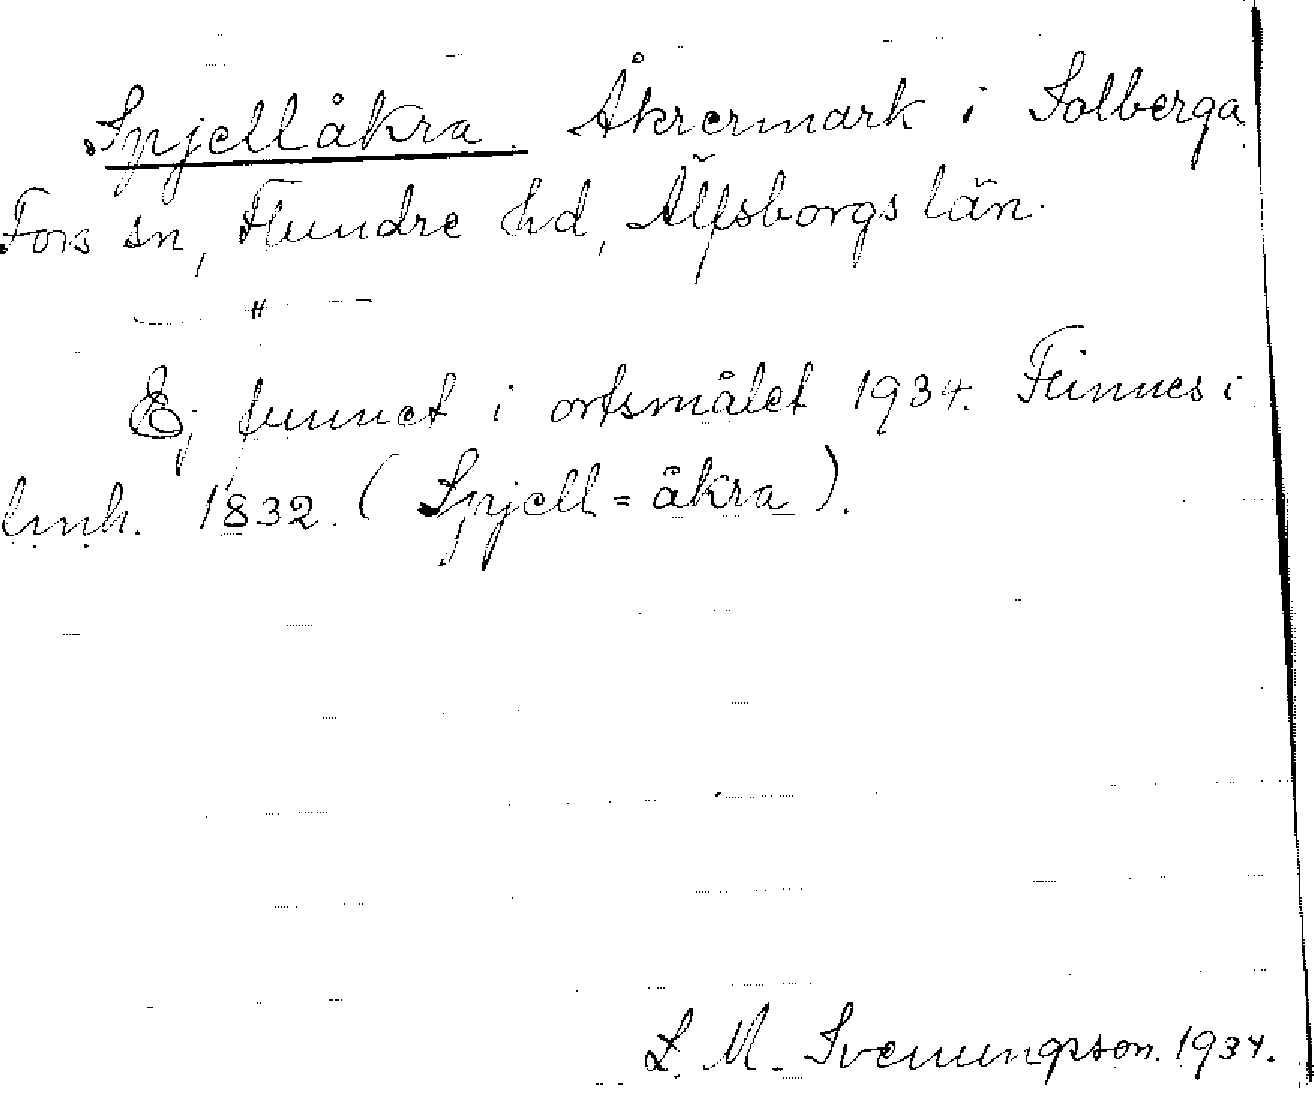 Spjellåkra. Åkrermark i Solberga
Fors sn, Flundre hd, Älfsborgs län.
— " —
Ej funnet i ortsmålet 1934. Finnes i
lmh. 1832. (Spjell=åkra).
L. M. Svenungsson. 1934.